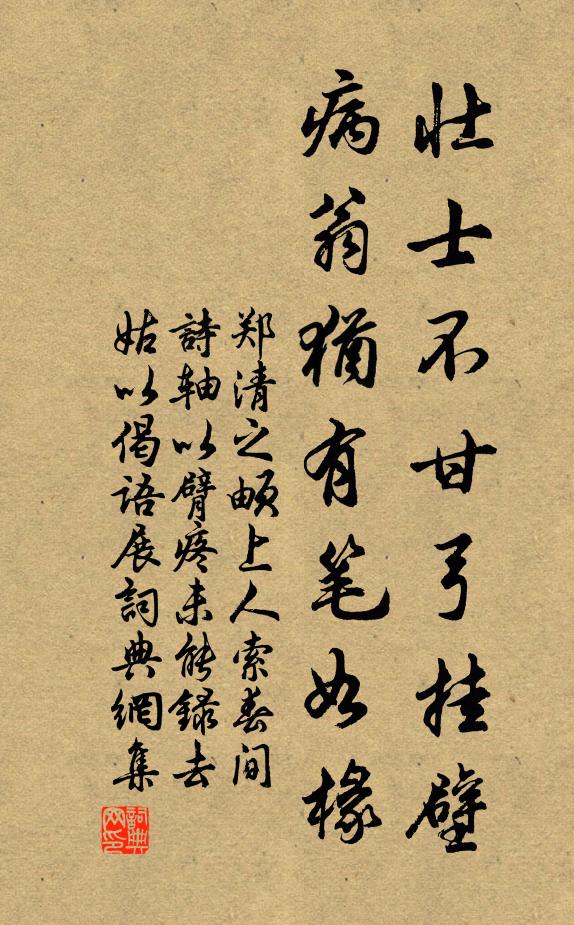 壮士不甘弓挂壁
病翁犹有笔如椽
郑清之頔上人索春间
詩轴以臂疼未能録去
姑以偈语展詞典網集
詞典网印